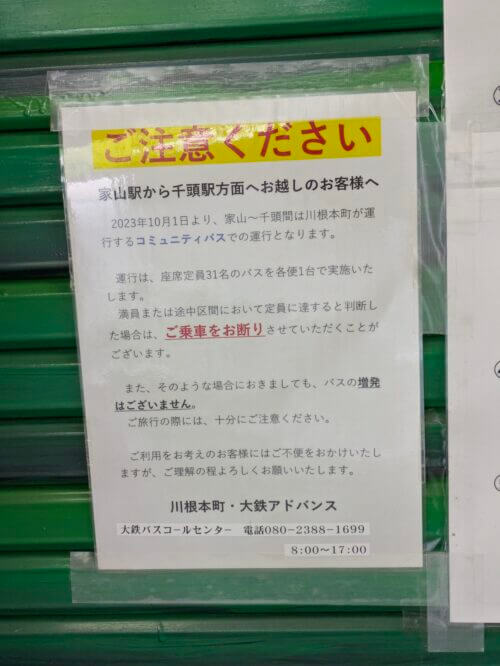 ご注意ください
家山駅から千頭駅方面へお越しのお客様へ
2023年10月1日より、家山～千頭間は川根本町が運
行するコミュニティバスでの運行となります。
運行は、座席定員31名のバスを各便1台で実施いた
します。
満員または途中区間において定員に達すると判断し
た場合は、ご乗車をお断りさせていただくことが
ございます。
また、そのような場合におきましても、バスの増発
はございません。
ご旅行の際には、十分にご注意ください。
ご利用をお考えのお客様にはご不便をおかけいたし
ますが、ご理解の程よろしくお願いいたします。
川根本町・大鉄アドバンス
大鉄バスコールセンター 電話080-2388-1699
8:00～17:00